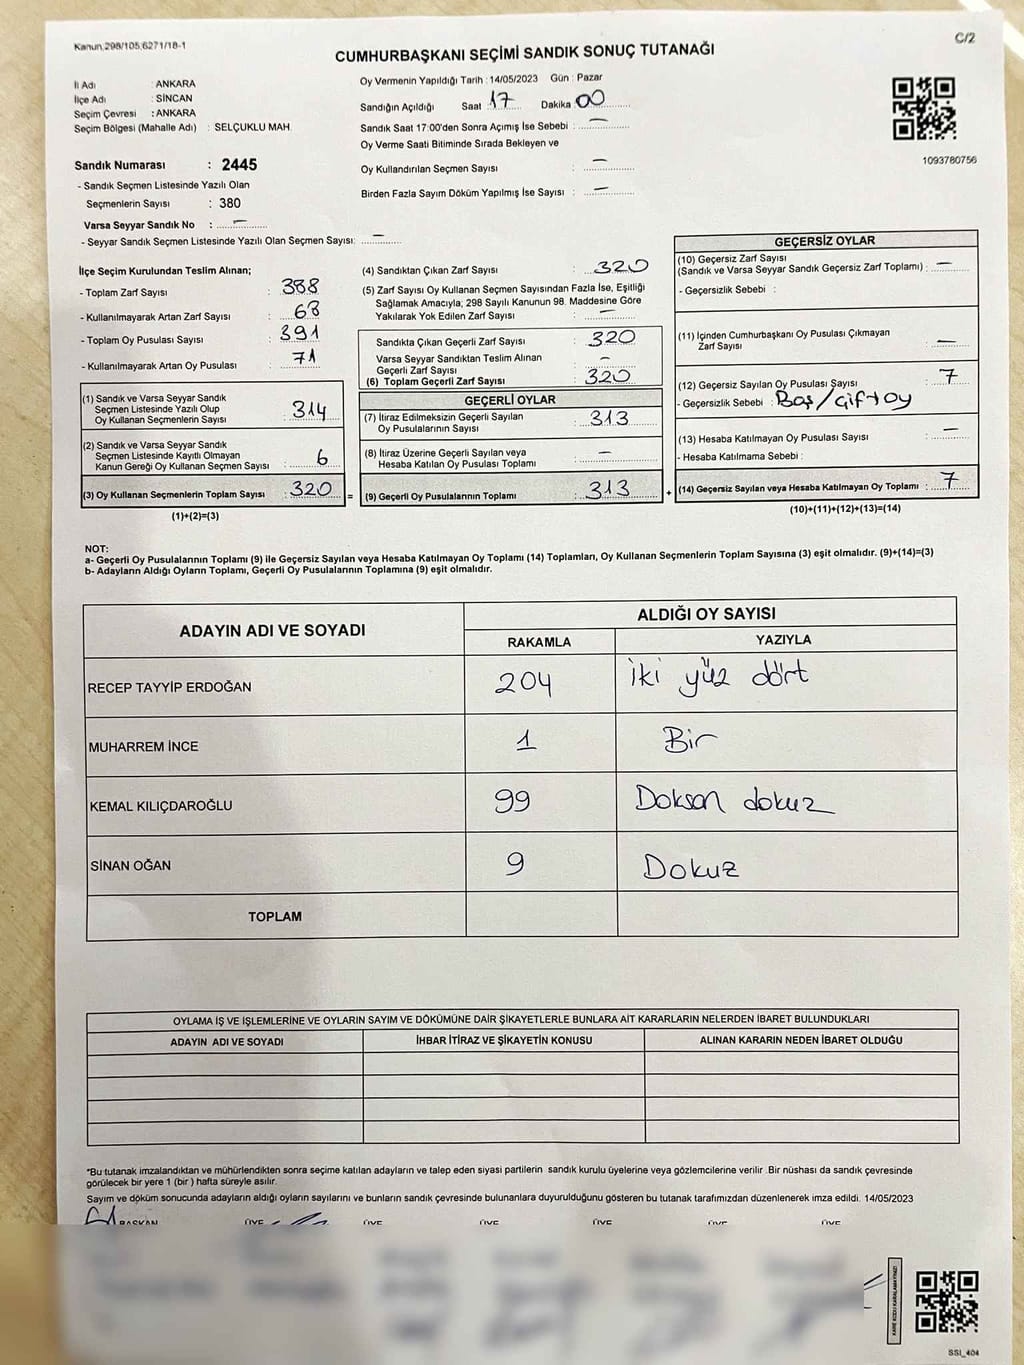 Kanun,298/105,6271/18-1
C/2
CUMHURBAŞKANI SEÇİMİ SANDIK SONUÇ TUTANAĞI
İl Adı : ANKARA
İlçe Adı : SİNCAN
Seçim Çevresi : ANKARA
Seçim Bölgesi (Mahalle Adı) : SELÇUKLU MAH.
Sandık Numarası : 2445
- Sandık Seçmen Listesinde Yazılı Olan
Seçmenlerin Sayısı : 380
Varsa Seyyar Sandık No : —
- Seyyar Sandık Seçmen Listesinde Yazılı Olan Seçmen Sayısı: —
Oy Vermenin Yapıldığı Tarih : 14/05/2023 Gün : Pazar
Sandığın Açıldığı Saat 17 Dakika 00
Sandık Saat 17:00'den Sonra Açımış İse Sebebi : —
Oy Verme Saati Bitiminde Sırada Bekleyen ve
Oy Kullandırılan Seçmen Sayısı : —
Birden Fazla Sayım Döküm Yapılmış İse Sayısı : —
1093780756
İlçe Seçim Kurulundan Teslim Alınan;
- Toplam Zarf Sayısı : 388
- Kullanılmayarak Artan Zarf Sayısı : 68
- Toplam Oy Pusulası Sayısı : 391
- Kullanılmayarak Artan Oy Pusulası : 71
(1) Sandık ve Varsa Seyyar Sandık
Seçmen Listesinde Yazılı Olup
Oy Kullanan Seçmenlerin Sayısı : 314
(2) Sandık ve Varsa Seyyar Sandık
Seçmen Listesinde Kayıtlı Olmayan
Kanun Gereği Oy Kullanan Seçmen Sayısı : 6
(3) Oy Kullanan Seçmenlerin Toplam Sayısı : 320
(1)+(2)=(3)
=
(4) Sandıktan Çıkan Zarf Sayısı : 320
(5) Zarf Sayısı Oy Kullanan Seçmen Sayısından Fazla İse, Eşitliği
Sağlamak Amacıyla; 298 Sayılı Kanunun 98. Maddesine Göre
Yakılarak Yok Edilen Zarf Sayısı : —
Sandıkta Çıkan Geçerli Zarf Sayısı : 320
Varsa Seyyar Sandıktan Teslim Alınan
Geçerli Zarf Sayısı : —
(6) Toplam Geçerli Zarf Sayısı : 320
GEÇERLİ OYLAR
(7) İtiraz Edilmeksizin Geçerli Sayılan
Oy Pusulalarının Sayısı : 313
(8) İtiraz Üzerine Geçerli Sayılan veya
Hesaba Katılan Oy Pusulası Toplamı : —
(9) Geçerli Oy Pusulalarının Toplamı : 313
+
GEÇERSİZ OYLAR
(10) Geçersiz Zarf Sayısı
(Sandık ve Varsa Seyyar Sandık Geçersiz Zarf Toplamı) : —
- Geçersizlik Sebebi :
(11) İçinden Cumhurbaşkanı Oy Pusulası Çıkmayan
Zarf Sayısı : —
(12) Geçersiz Sayılan Oy Pusulası Sayısı : 7
- Geçersizlik Sebebi : Boş/çift oy
(13) Hesaba Katılmayan Oy Pusulası Sayısı : —
- Hesaba Katılmama Sebebi :
(14) Geçersiz Sayılan veya Hesaba Katılmayan Oy Toplamı : 7
(10)+(11)+(12)+(13)=(14)
NOT:
a- Geçerli Oy Pusulalarının Toplamı (9) ile Geçersiz Sayılan veya Hesaba Katılmayan Oy Toplamı (14) Toplamları, Oy Kullanan Seçmenlerin Toplam Sayısına (3) eşit olmalıdır. (9)+(14)=(3)
b- Adayların Aldığı Oyların Toplamı, Geçerli Oy Pusulalarının Toplamına (9) eşit olmalıdır.
ADAYIN ADI VE SOYADI
ALDIĞI OY SAYISI
RAKAMLA YAZIYLA
RECEP TAYYİP ERDOĞAN 204 İki yüz dört
MUHARREM İNCE 1 Bir
KEMAL KILIÇDAROĞLU 99 Doksan dokuz
SİNAN OĞAN 9 Dokuz
TOPLAM
OYLAMA İŞ VE İŞLEMLERİNE VE OYLARIN SAYIM VE DÖKÜMÜNE DAİR ŞİKAYETLERLE BUNLARA AİT KARARLARIN NELERDEN İBARET BULUNDUKLARI
ADAYIN ADI VE SOYADI İHBAR İTİRAZ VE ŞİKAYETİN KONUSU ALINAN KARARIN NEDEN İBARET OLDUĞU
*Bu tutanak imzalandıktan ve mühürlendikten sonra seçime katılan adayların ve talep eden siyasi partilerin sandık kurulu üyelerine veya gözlemcilerine verilir .Bir nüshası da sandık çevresinde
görülecek bir yere 1 (bir ) hafta süreyle asılır.
Sayım ve döküm sonucunda adayların aldığı oyların sayılarını ve bunların sandık çevresinde bulunanlara duyurulduğunu gösteren bu tutanak tarafımızdan düzenlenerek imza edildi. 14/05/2023
BAŞKAN ÜYE ÜYE ÜYE ÜYE ÜYE ÜYE
KARE KODU KARALAMAYINIZ!
SSI_404